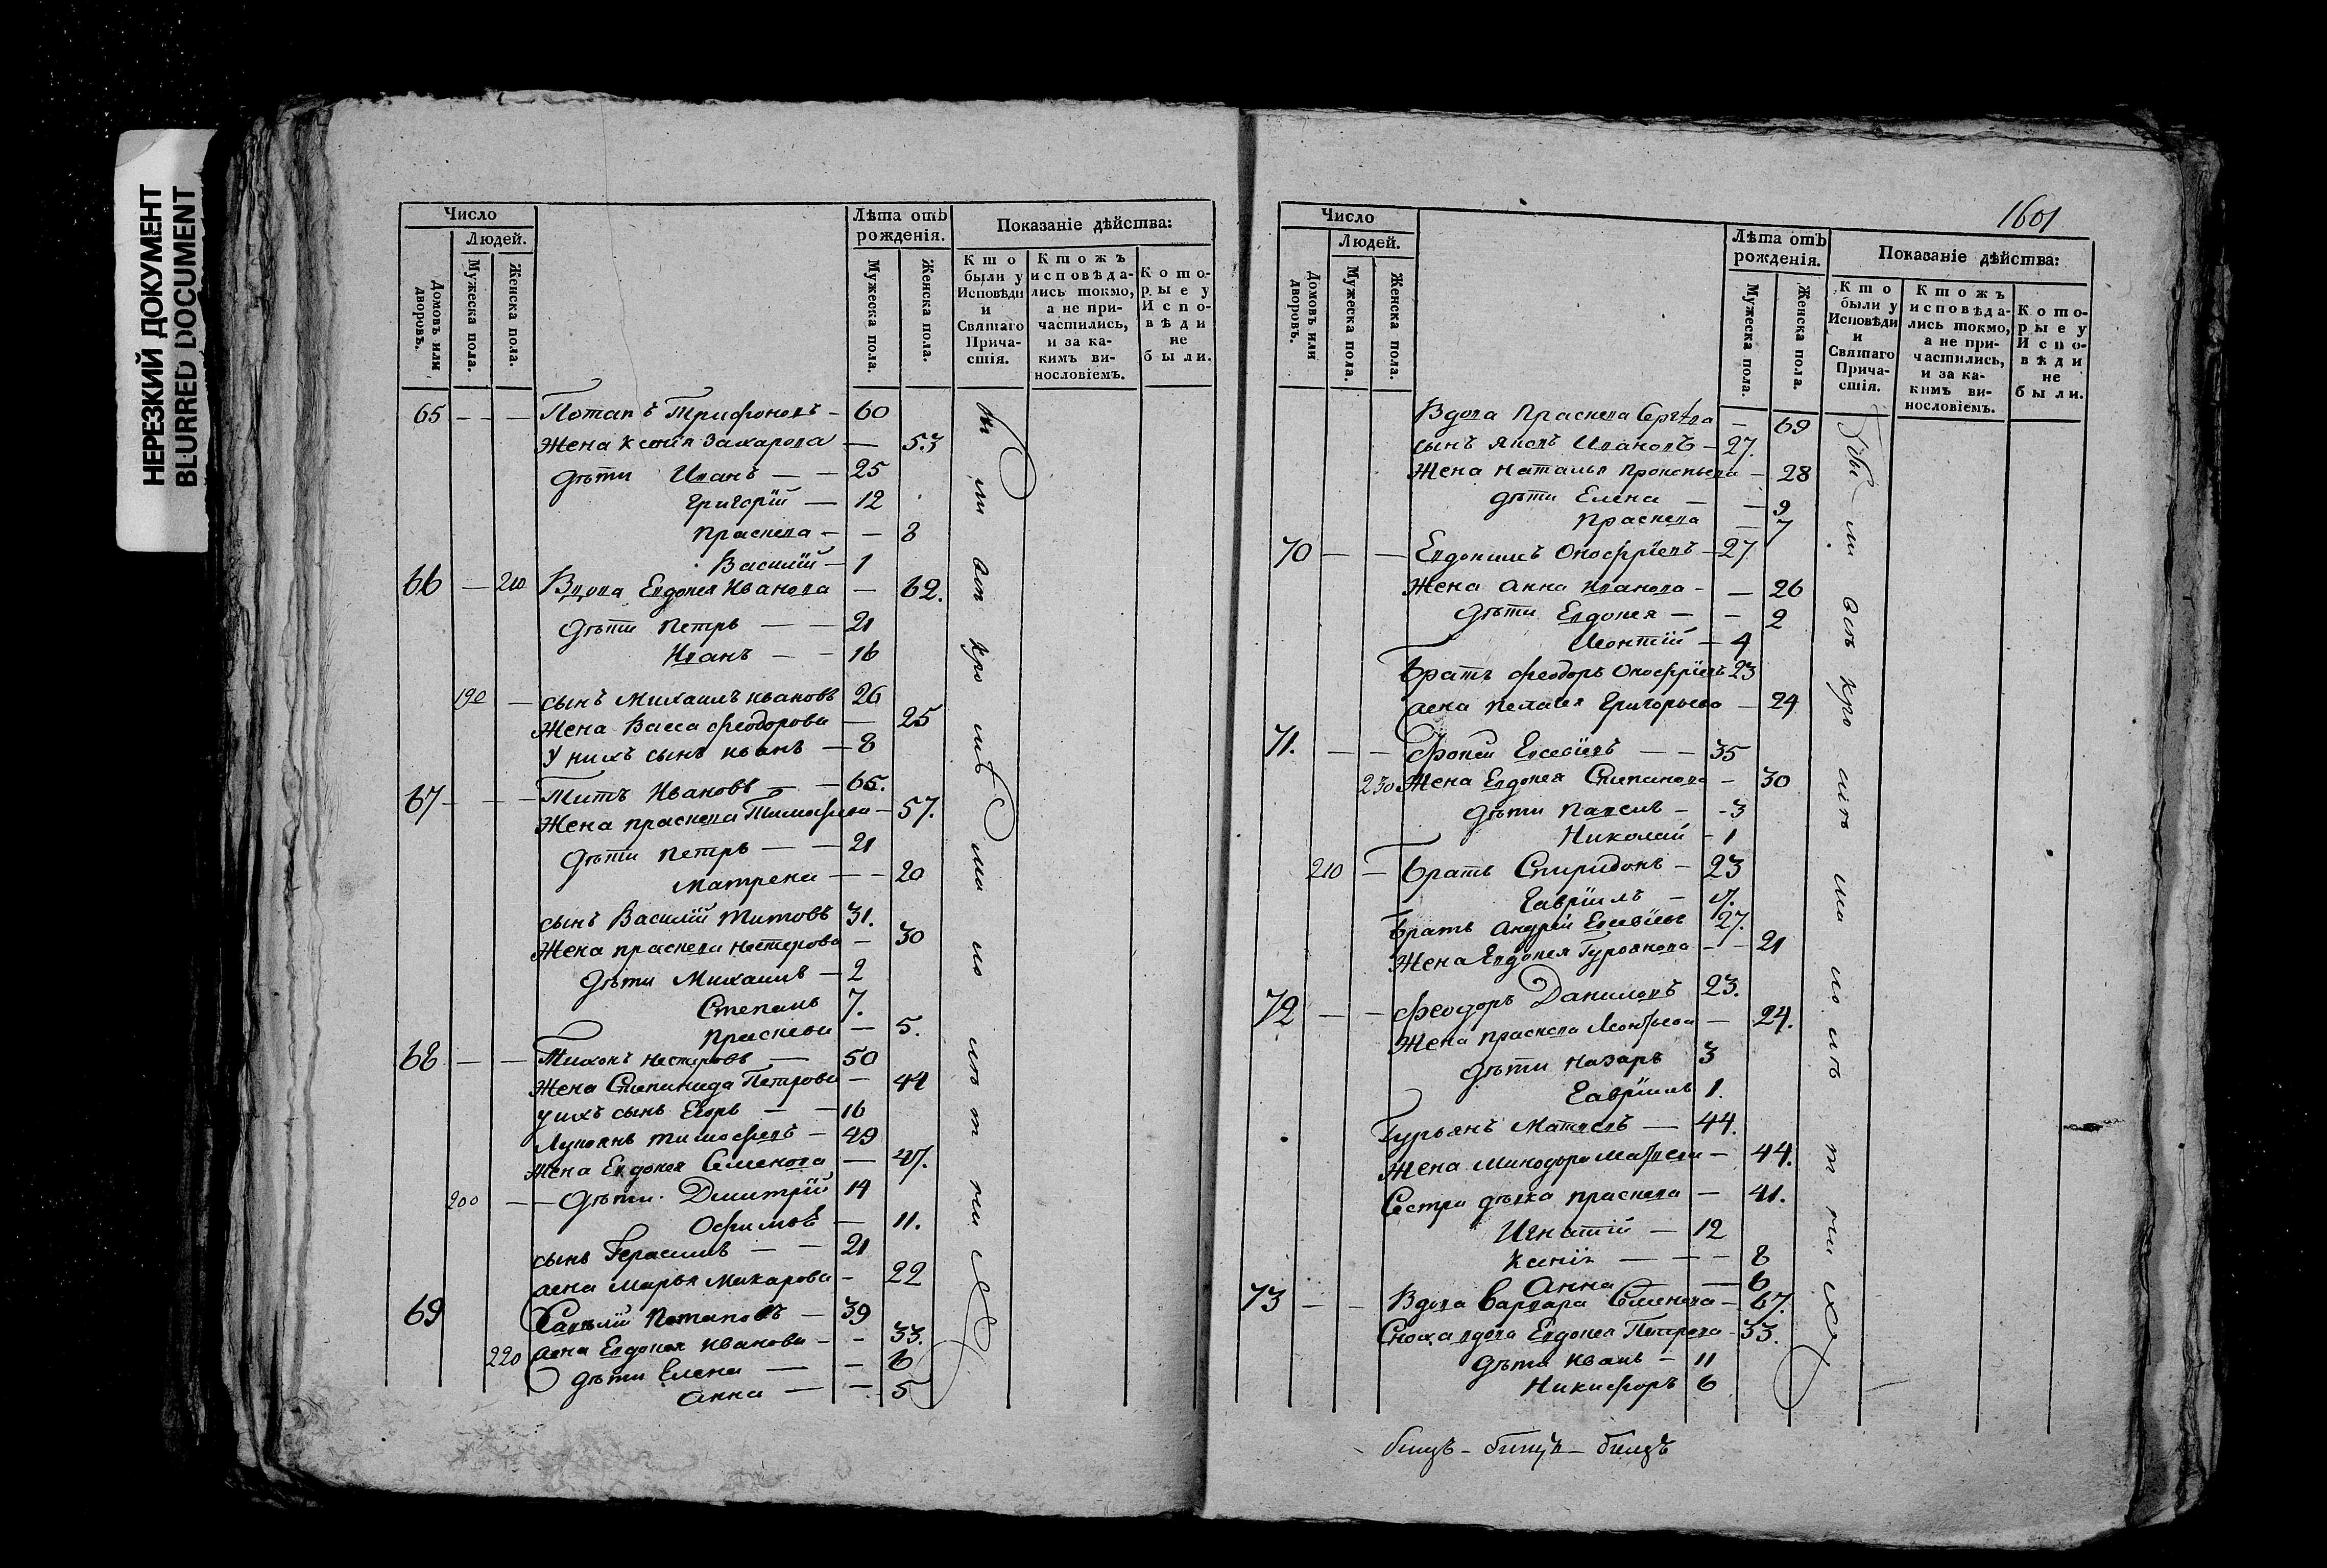 НЕРЕЗКИЙ ДОКУМЕНТ
BLURRED DOCUMENT
Число
Людей.
Домовъ или дворовъ.
Мужеска пола.
Женска пола.
Лѣта отъ рожденія.
Мужеска пола.
Женска пола.
Показаніе дѣйства:
Кто были у Исповѣди и Святаго Прича-стія.
Ктожъ исповѣда-лись токмо, а не при-частились, и за ка-кимъ ви-нословіемъ.
Кото-рые у Испо-вѣди не были.
65 — — Потапъ Трифоновъ — 60
Жена Ксенія Захарова — 53
дѣти Иванъ — — 25
Григорій — 12
Прасковя — — 8
Василій — 1
66 — 210 Вдова Евдокея Иванова — 62.
Дѣти Петръ — — 21
Иванъ — — 16
190 — сынъ Михаилъ Ивановъ 26
Жена Васса Феодорова — 25
У нихъ сынъ Иванъ — 8
67 — — — Титъ Ивановъ — — 65.
Жена Прасковя Тимофеева — 57.
Дѣти Петръ — — 21
Матрена — — 20
сынъ Василій Титовъ 31.
Жена Прасковя Нестерова — 30
Дѣти Михаилъ — 2
Степанъ 7.
Прасковя — 5.
68 — — Тихонъ Нестеровъ — 50
Жена Степанида Петрова — 44
у ихъ сынъ Егоръ — — 16
Лукьянъ Тимофеевъ — 49
Жена Евдокея Семенова — 47.
200 — — Дѣти Димитрій 14
— 11.
сынъ Герасимъ — — 21
жена Марья Макарова — 22
69 Савелій Потаповъ — 39
220 жена Евдокея Иванова — — 33.
дѣти Елена — — 6
Анна — — 5
были от кро ме ма ло ле т ни х
1601
Число
Людей.
Домовъ или дворовъ.
Мужеска пола.
Женска пола.
Лѣта отъ рожденія.
Мужеска пола.
Женска пола.
Показаніе дѣйства:
Кто были у Исповѣди и Святаго Прича-стія.
Ктожъ исповѣда-лись токмо, а не при-частились, и за ка-кимъ ви-нословіемъ.
Кото-рые у Испо-вѣди не были.
Вдова Прасковя — 69
сынъ Ивановъ — 27.
Жена Наталья Прокопьева — 28
дѣти Елена — — 9
Прасковя — 7
70 — — Евдокимъ Онофріевъ — 27
Жена Анна Иванова — — 26
Дѣти Евдокея — — 2
Леонтій — 4
Братъ Феодоръ Онофріевъ 23
жена Пелагея Григорьева — 24
71. — — Фокей Евсевіевъ — — 35
230 Жена Евдокея Степанова — 30
дѣти Павелъ — 3
Николай — 1
210 — Братъ Спиридонъ — 23
Гавріилъ — 17.
Братъ Андрей Евсевіевъ 27.
Жена Евдокея — — 21
72 — — Феодоръ Даниловъ 23.
Жена Прасковя Леонтьева — 24.
дѣти Назаръ 3
Гавріилъ 1.
Гурьянъ Матвеевъ — 44.
Жена Минодора Матвеева — 44.
Сестра дѣвка Прасковя — 41.
Игнатій — 12
Ксенія — — — 8
Анна — — 6
73 — — Вдова Варвара Семенова — 67.
Сноха вдова Евдокея Петрова — 33.
Дѣти Иванъ — 11
Никифоръ 6